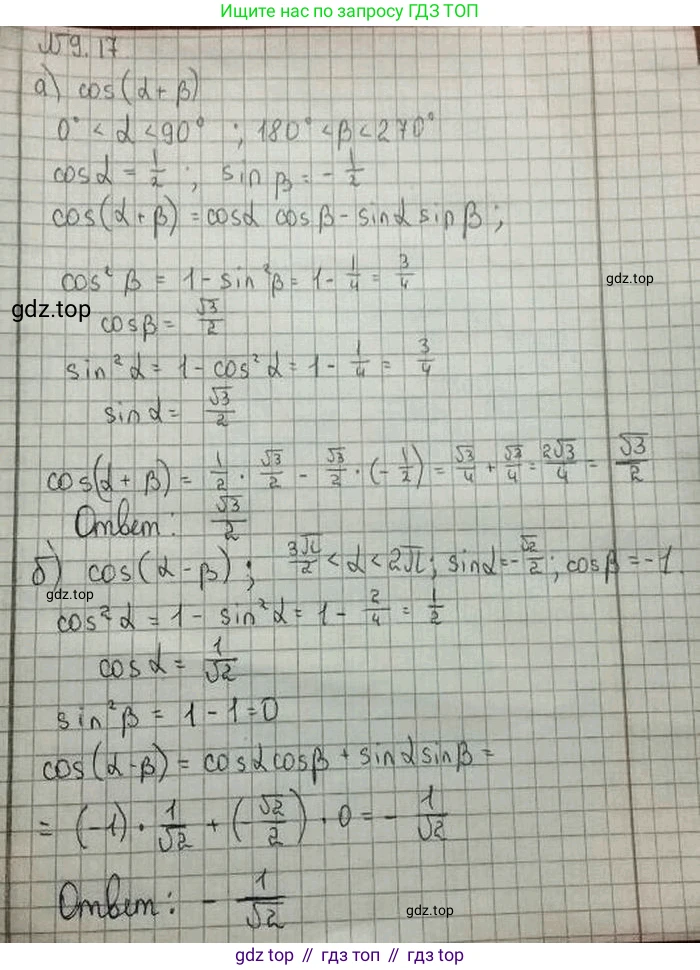 Ищите нас по запросу ГДЗ ТОП
№9.17
а) cos(α+β)
0° < α < 90° ; 180° < β < 270°
cosα = 1/2 ; sin β = - 1/2
cos(α+β) = cosα cosβ - sinα sinβ ;
cos² β = 1 - sin²β = 1 - 1/4 = 3/4
gdz.top
gdz.top
cosβ = √3/2
sin² α = 1 - cos² α = 1 - 1/4 = 3/4
sin α = √3/2
cos(α+β) = 1/2 · √3/2 - √3/2 · (- 1/2) = √3/4 + √3/4 = 2√3/4 = √3/2
Ответ: √3/2
б) cos(α-β) ; 3π/2 < α < 2π ; sinα = - √2/2 ; cosβ = -1.
cos²α = 1 - sin²α = 1 - 2/4 = 1/2
cosα = 1/√2
sin²β = 1 - 1 = 0
cos(α-β) = cosα cosβ + sinα sinβ =
= (-1) · 1/√2 + (- √2/2) · 0 = - 1/√2
Ответ: - 1/√2
gdz.top
gdz.top // гдз.топ // gdz.top